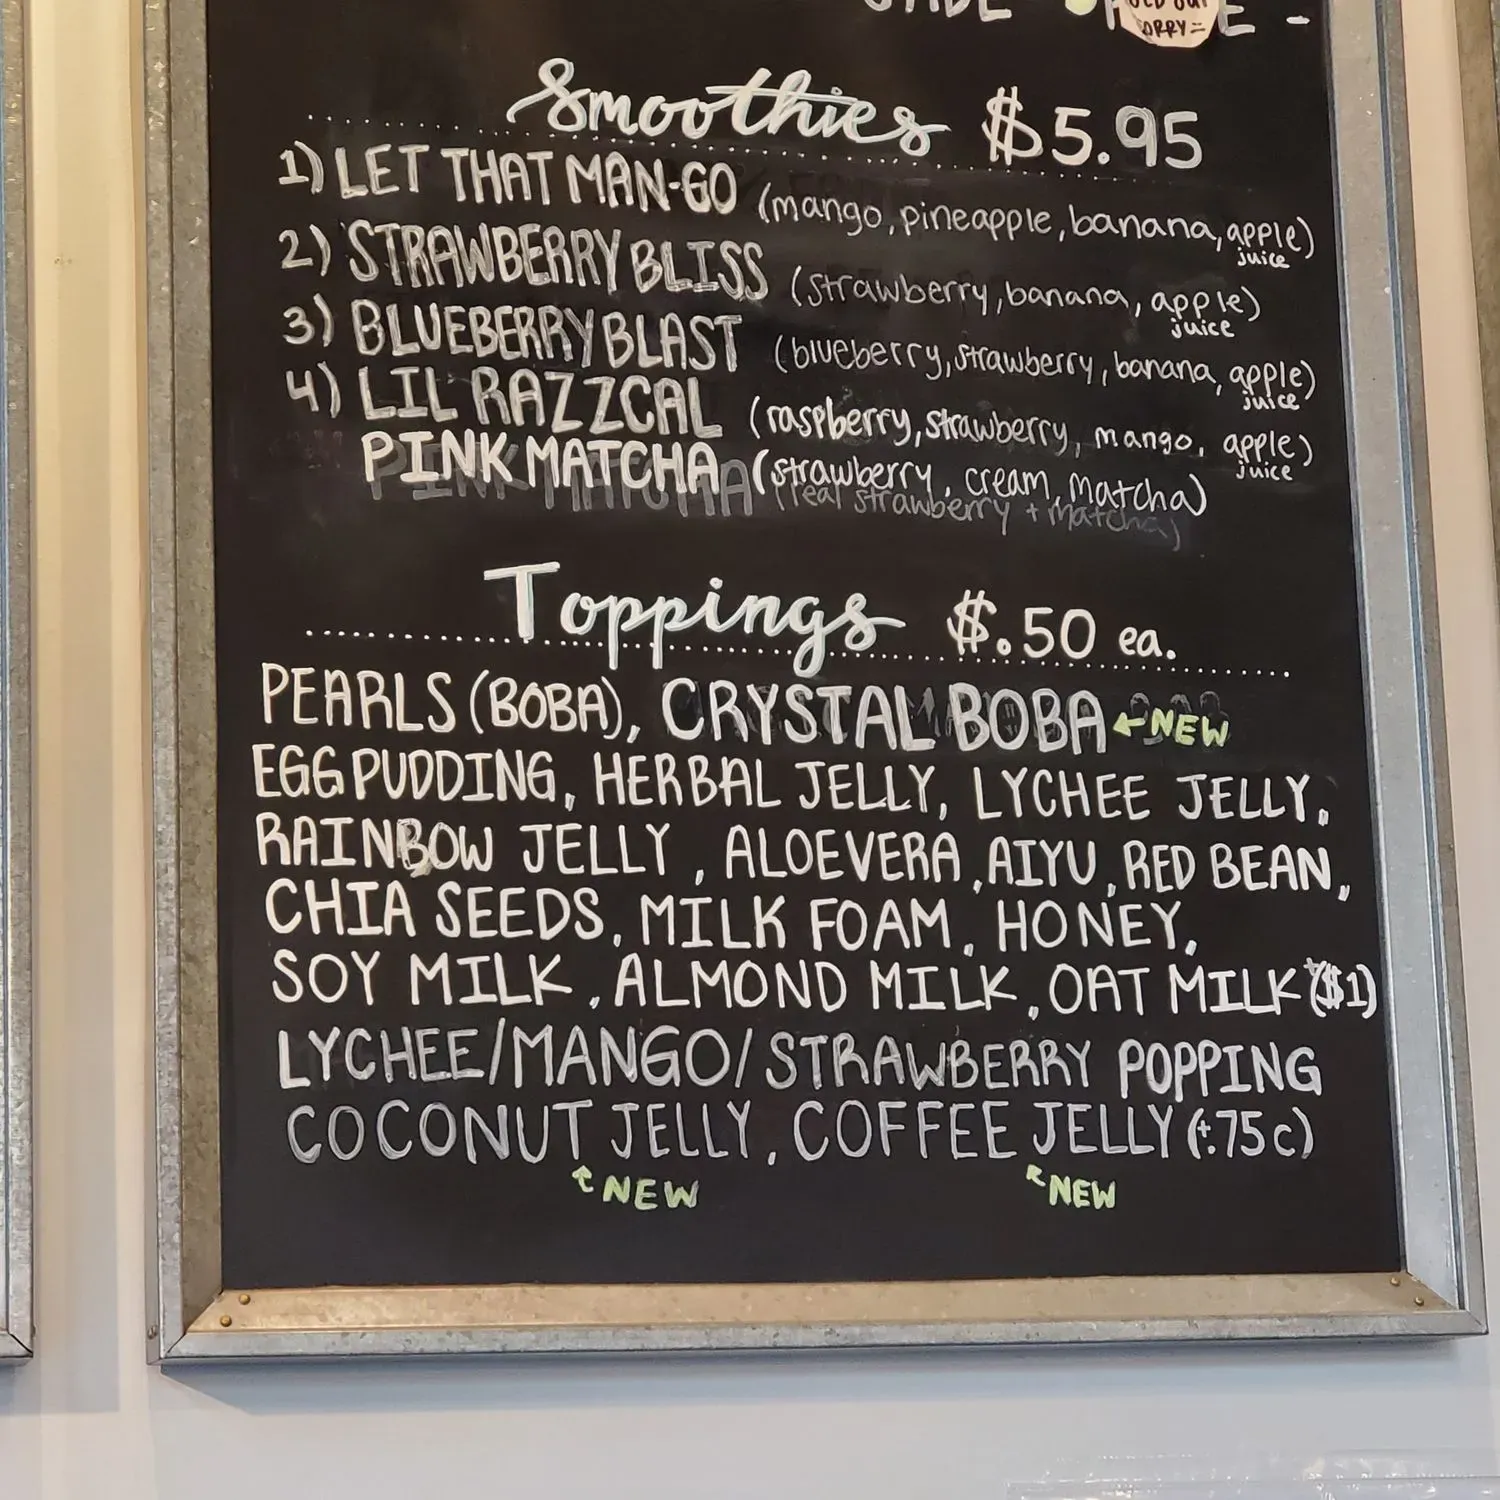 SORRY =
Smoothies $5.95
1) LET THAT MAN-GO (mango, pineapple, banana, apple juice)
2) STRAWBERRY BLISS (strawberry, banana, apple juice)
3) BLUEBERRY BLAST (blueberry, strawberry, banana, apple juice)
4) LIL RAZZCAL (raspberry, strawberry, mango, apple juice)
PINK MATCHA (strawberry, cream, matcha)
PINK MATCHA (real strawberry + matcha)
Toppings $.50 ea.
PEARLS (BOBA), CRYSTAL BOBA ←NEW
EGG PUDDING, HERBAL JELLY, LYCHEE JELLY,
RAINBOW JELLY, ALOEVERA, AIYU, RED BEAN,
CHIA SEEDS, MILK FOAM, HONEY,
SOY MILK, ALMOND MILK, OAT MILK (+$1)
LYCHEE/MANGO/STRAWBERRY POPPING
COCONUT JELLY, COFFEE JELLY (+.75c)
↑ NEW ↖ NEW